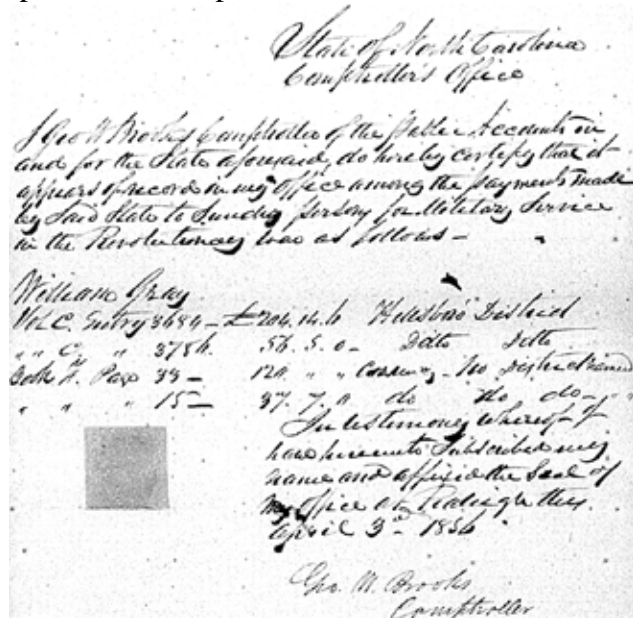 State of North Carolina
Comptroller's Office
I Geo W Brooks Comptroller of the Public Accounts in
and for the State aforesaid, do hereby certify that it
appears of record in my office among the payments made
by Said State to Sundry persons for Military Service
in the Revolutionary War as follows -
William Gray
Vol C. Entry 3684 - £ 204. 14. 6 District
" " C, " 5 6. 5. 0 - Ditto Ditto
Book A. Page 33 - " " Currency - No District named
" " " 15 - 37. 7. do No do - "
In testimony whereof I
have hereunto Subscribed my
name and affixed the Seal of
my office at Raleigh this
April 3d 1856
Geo. W. Brooks
Comptroller